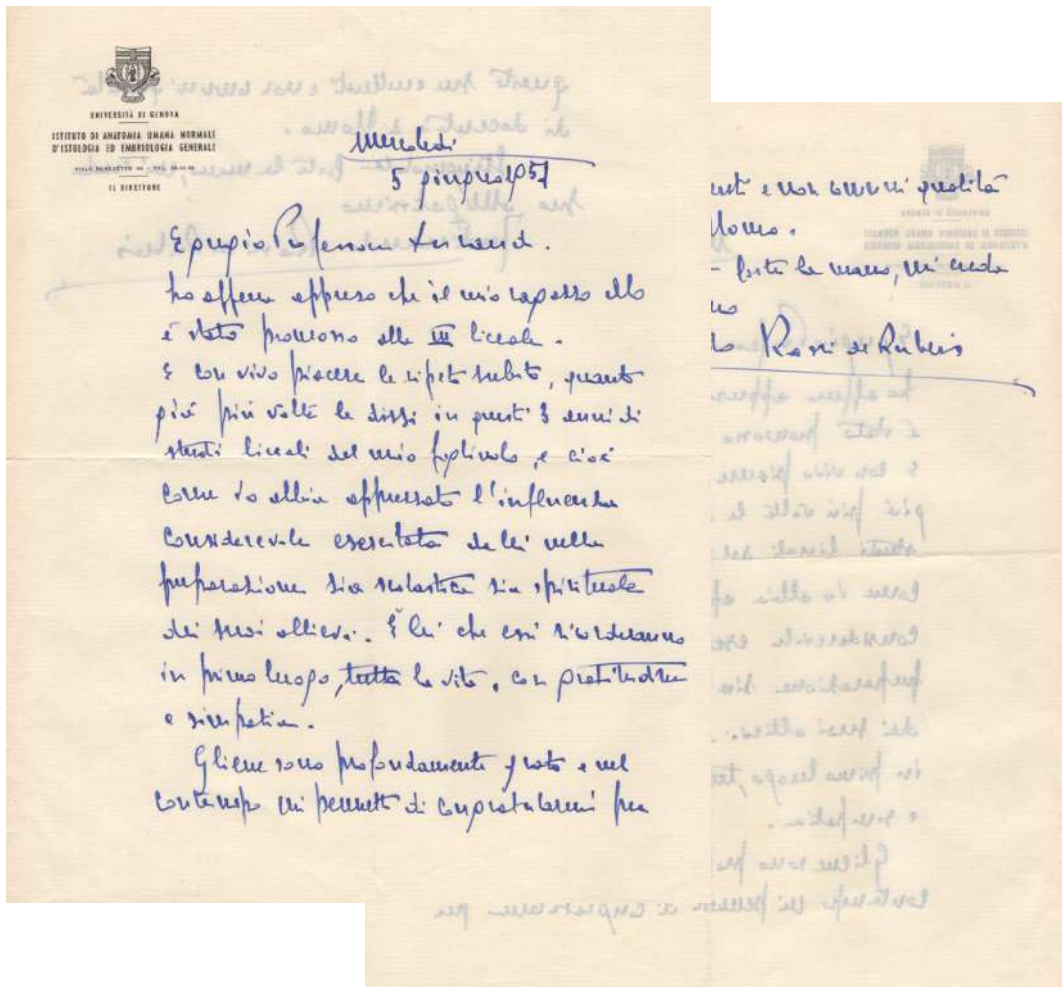 UNIVERSITÀ DI GENOVA
ISTITUTO DI ANATOMIA UMANA NORMALE
D'ISTOLOGIA ED EMBRIOLOGIA GENERALE
IL DIRETTORE
Mercoledì
5 giugno 1957
Egregio Professore
ho appena appreso che il mio ragazzo
è stato promosso alla III liceale.
È con vivo piacere le ripeto subito, quanto
già più volte le dissi in questi 3 anni di
studi liceali del mio figliuolo, e cioè
come io abbia apprezzato l'influenza
considerevole esercitata da lei nella
preparazione sia scolastica sia spirituale
dei suoi allievi. È lei che essi ricorderanno
in primo luogo, tutta la vita, con gratitudine
e simpatia.
Gliene sono profondamente grato e nel
contempo mi permetto di congratularmi per
e non comuni qualità
forte la mano, mi creda